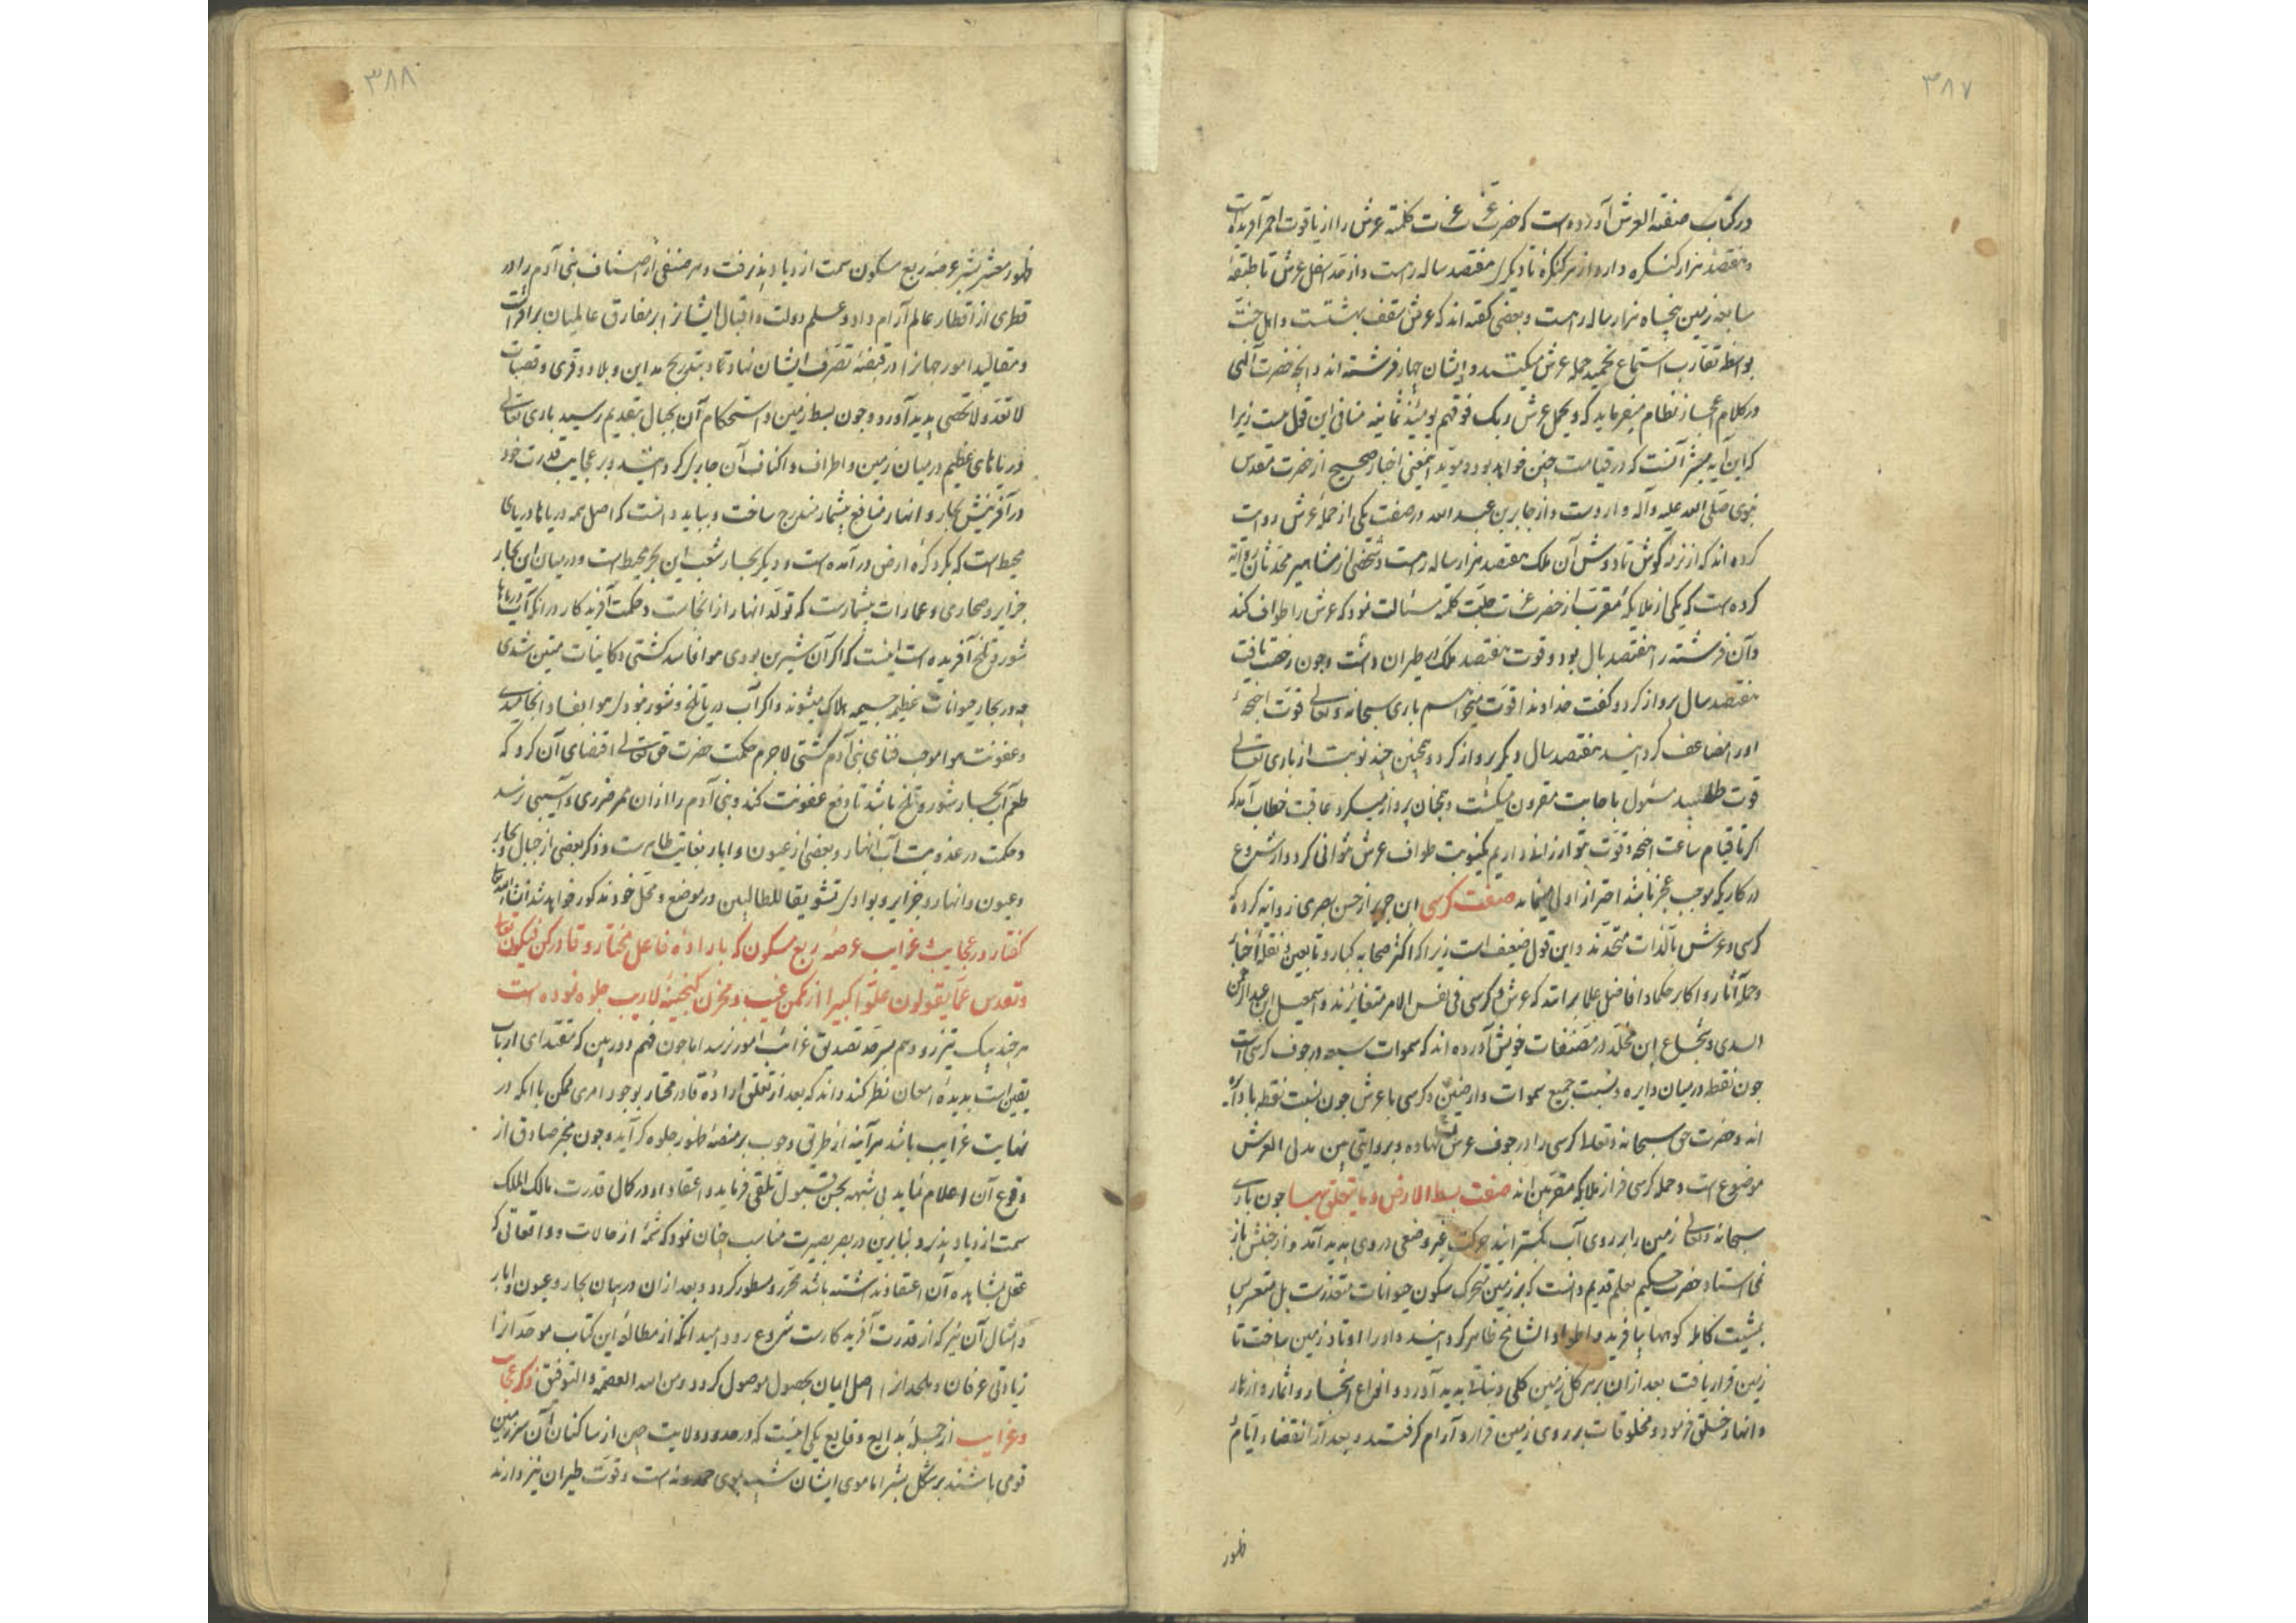 ۳۸۷
در کتاب صفة العرش آورده است که حضرت عزت کلمته عرش را از یاقوت احمر آفریده است
و هفتصد هزار کنکره دارد از هر کنکرهٔ تا دیکری هفتصد ساله راهست و از حد اسفل عرش تا طبقهٔ
سابعه زمین پنجاه هزار ساله راهست و بعضی کفته اند که عرش سقف بهشتست و اهل جنت
بواسطه تقارب استماع تحمید حمله عرش میکنند و ایشان چهار فرشته اند و انچه حضرت الهی
در کلام اعجاز نظام میفرماید که و یحمل عرش ربک فوقهم یومئذ ثمانیه منافی این قول نیست زیرا
که این آیه مبشر آنست که در قیامت چنین خواهد بود و موید اینمعنی اخبار صحیح از حضرت مقدس
نبوی صلی الله علیه و آله وارد است و از جابر بن عبد الله در صفت یکی از حملهٔ عرش روایت
کرده اند که از نرمهٔ کوش تا دوش آن ملک هفتصد هزار ساله راهست و شخصی از مشاهیر محدثان روایة
کرده است که یکی از ملایکهٔ مقرب از حضرت عزت جلت کلمته مسئالت نمود که عرش را طواف کند
و آن فرشته را هفتصد بال بود و قوت هفتصد ملک در طیران داشت و چون رخصت یافت
هفتصد سال پرواز کرد و کفت خداوندا قوت میخواهم باری سبحانه و تعالی قوت اجنحهٔ
او را مضاعف کردانید هفتصد سال دیکر پرواز کرد و همچنین چند نوبت از باری تعالی
قوت طلبید مسئول باجابت مقرون میکشت و همچنان پرواز میکرد عاقبت خطاب آمد که
اکر تا قیام ساعت اجنحه و قوت بتو ارزانی داریم یکنوبت طواف عرش نتوانی کرد و از شروع
در کاریکه موجب عجز باشد احتراز اولی مینماید صفت کرسی ابن جریر از حسن بصری روایه کرده که
کرسی و عرش بالذات متحدند و این قول ضعیف است زیرا که اکثر صحابه کبار و تابعین و نقلهٔ اخبار
و حملهٔ آثار و اکابر حکما و افاضل علما برانند که عرش و کرسی فی نفس الامر متغایرند و اسمعیل ابن عبد الرحمن
السدی و شجاع ابن مخلد در مصنفات خویش آورده اند که سموات سبعه در جوف کرسی است
چون نقطه در میان دایره و نسبت جمیع سموات و ارضین و کرسی با عرش چون نسبت نقطه با دایره
اند و حضرت حق سبحانه و تعالی کرسی را در جوف عرش نهاده و بروایتی بین یدی العرش
موضوع است و حمله کرسی از ملایکه مقربین اند صفت بسط الارض و ما یتعلق بها چون باری
سبحانه و تعالی زمین را بر روی آب بکسترانید حرکت غیر وضعی در وی پدید آمد و از جنبش باز
نمی استاد حضرت حکیم بعلم قدیم دانست که بر زمین متحرک سکون حیوانات متعذرست بل متعسر پس
بمشیت کامله کوهها بیافرید و اطواد الشامخ ظاهر کردانید و او را اوتاد زمین ساخت تا
زمین قرار یافت بعد از ان بر هر کل زمین کلی و نباتی پدید آورد و انواع اشجار و اثمار و ازهار
و انهار خلق فرمود و مخلوقات بر روی زمین قرار و آرام کرفتند و بعد از انقضاء ایام
ظهور
۳۸۸
ظهور معشر بشر عرصهٔ ربع مسکون سمت ازدیاد پذیرفت و هر صنفی از اصناف بنی آدم را در
قطری از اقطار عالم آرام داد و علم دولت و اقبال ایشانرا بر مفارق عالمیان برافراشت
و مقالید امور جهانرا در قبضهٔ تصرف ایشان نهاد تا بتدریج مداین و بلاد و قری و قصبات
لا تعد و لا تحصی پدید آورد و چون بسط زمین و استحکام آن بجبال بتقدیم رسید باری تعالی
دریاهای عظیم در میان زمین و اطراف و اکناف آن جاری کردانید و بر عجایب قدرت خود
در آفرینش بحار و انهار منافع بیشمار مندرج ساخت و بباید دانست که اصل همه دریاها دریای
محیط است که بکرد کرهٔ ارض درآمده است و دیکر بحار شعب این بحر محیط است و در میان این بحار
جزایر و صحاری و عمارات بیشمارست که تولد انهار از انجاست و حکمت آفریدکار در انکه آب دریاها
شور و تلخ آفریده است اینست که اکر آن شیرین بودی هوا فاسد کشتی و کاینات متعفن شدی
چه در بحار حیوانات عظیم جسیمه هلاک میشوند و اکر آب دریا تلخ و شور نبودی هوا بفساد انجامیدی
و عفونت هوا موجب فنای بنی آدم کشتی لاجرم حکمت حضرت حق تعالی اقتضای آن کرد که
طعم آب بحار شور و تلخ باشد تا دفع عفونت کند و بنی آدم را از ان ممر ضرری و آسیبی نرسد
و حکمت در عذوبت آب انهار و بعضی از عیون و ابار بغایت ظاهرست و ذکر بعضی از جبال و بحار
و عیون و انهار و جزایر و بوادی تشویقا للطالبین در موضع و محل خود مذکور خواهد شد انشاء الله تعالی
کفتار در عجایب و غرایب عرصهٔ ربع مسکون که بارادهٔ فاعل مختار و قادر کن فیکون تعالی
و تقدس عما یقولون علوا کبیرا از مکمن غیب و مخزن کنجینهٔ لاریب جلوه نموده است
هر چند پیک تیزرو وهم بسرحد تصدیق غرائب امور نرسد اما چون فهم دوربین که مقتدای ارباب
یقین است بدیدهٔ امعان نظر کند داند که بعد از تعلق ارادهٔ قادر مختار بوجود امری ممکن با انکه در
نهایت غرایب باشد هر آینه از طرق وجوب بر منصهٔ ظهور جلوه کر آید و چون مخبر صادق از
وقوع آن اعلام نماید بی شبهه بحسن قبول تلقی فرماید و اعتقاد او در کمال قدرت مالک الملک
سمت ازدیاد پذیرد بنابرین در بصر بصیرت مناسب چنان نمود که شمهٔ از حالات و واقعاتی که
عقل بمشاهده آن اعتقاد نداشته باشد محرر و مسطور کردد و بعد از ان در بیان بحار و عیون و ابار
و امثال آن نیز که از قدرت آفریدکارست شروع رود امید انکه از مطالعهٔ این کتاب موحدانرا
زیادتی عرفان و ملحدانرا اصل ایمان بحصول موصول کردد و من الله العصمه و التوفیق ذکر عجایب
و غرایب از جملهٔ بدایع وقایع یکی اینست که در حدود ولایت چین از ساکنان آن سرزمین
قومی باشند بر شکل بشر اما موی ایشان شبیه بموی حمدونه است و قوت طیران نیز دارند